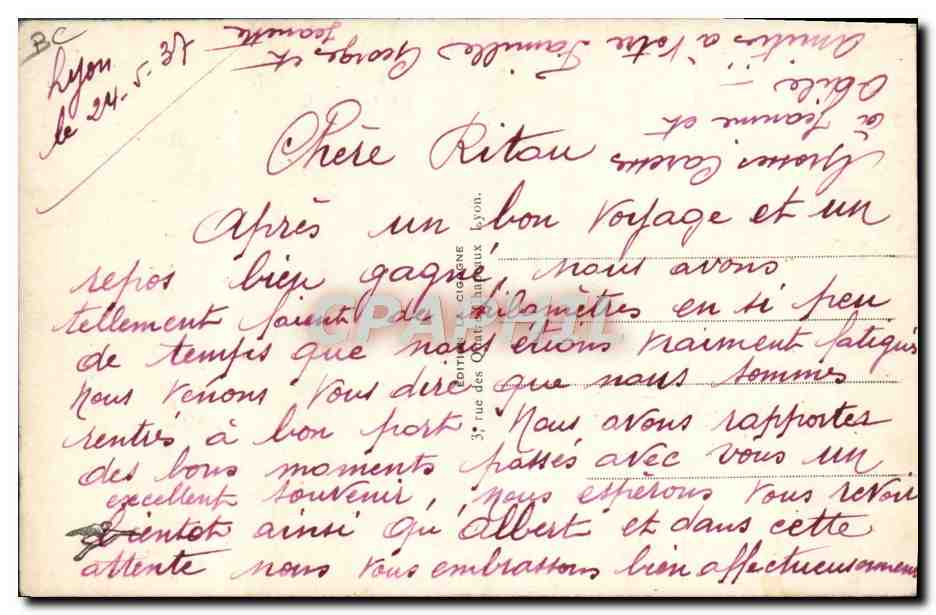 BC
Lyon
le 24-5-37
Chère Ritou
Après un bon voyage et un
repos bien gagné, nous avons
tellement faient de kilomètres en si peu
de temps que nous étions vraiment fatigués
Nous venons vous dire que nous sommes
rentrés à bon port. Nous avons rapportés
des bons moments passés avec vous un
excellent souvenir, nous espérons vous revoir
bientot ainsi qu'Albert et dans cette
attente nous vous embrassons bien affectueusement
Grosses Caresses
à Jeanne et
Odile
Amitiés à Votre Famille Georges et
Jeanette
EDITION LA CIGOGNE
3, rue des Quatre-Chapeaux Lyon.
CPARAMA